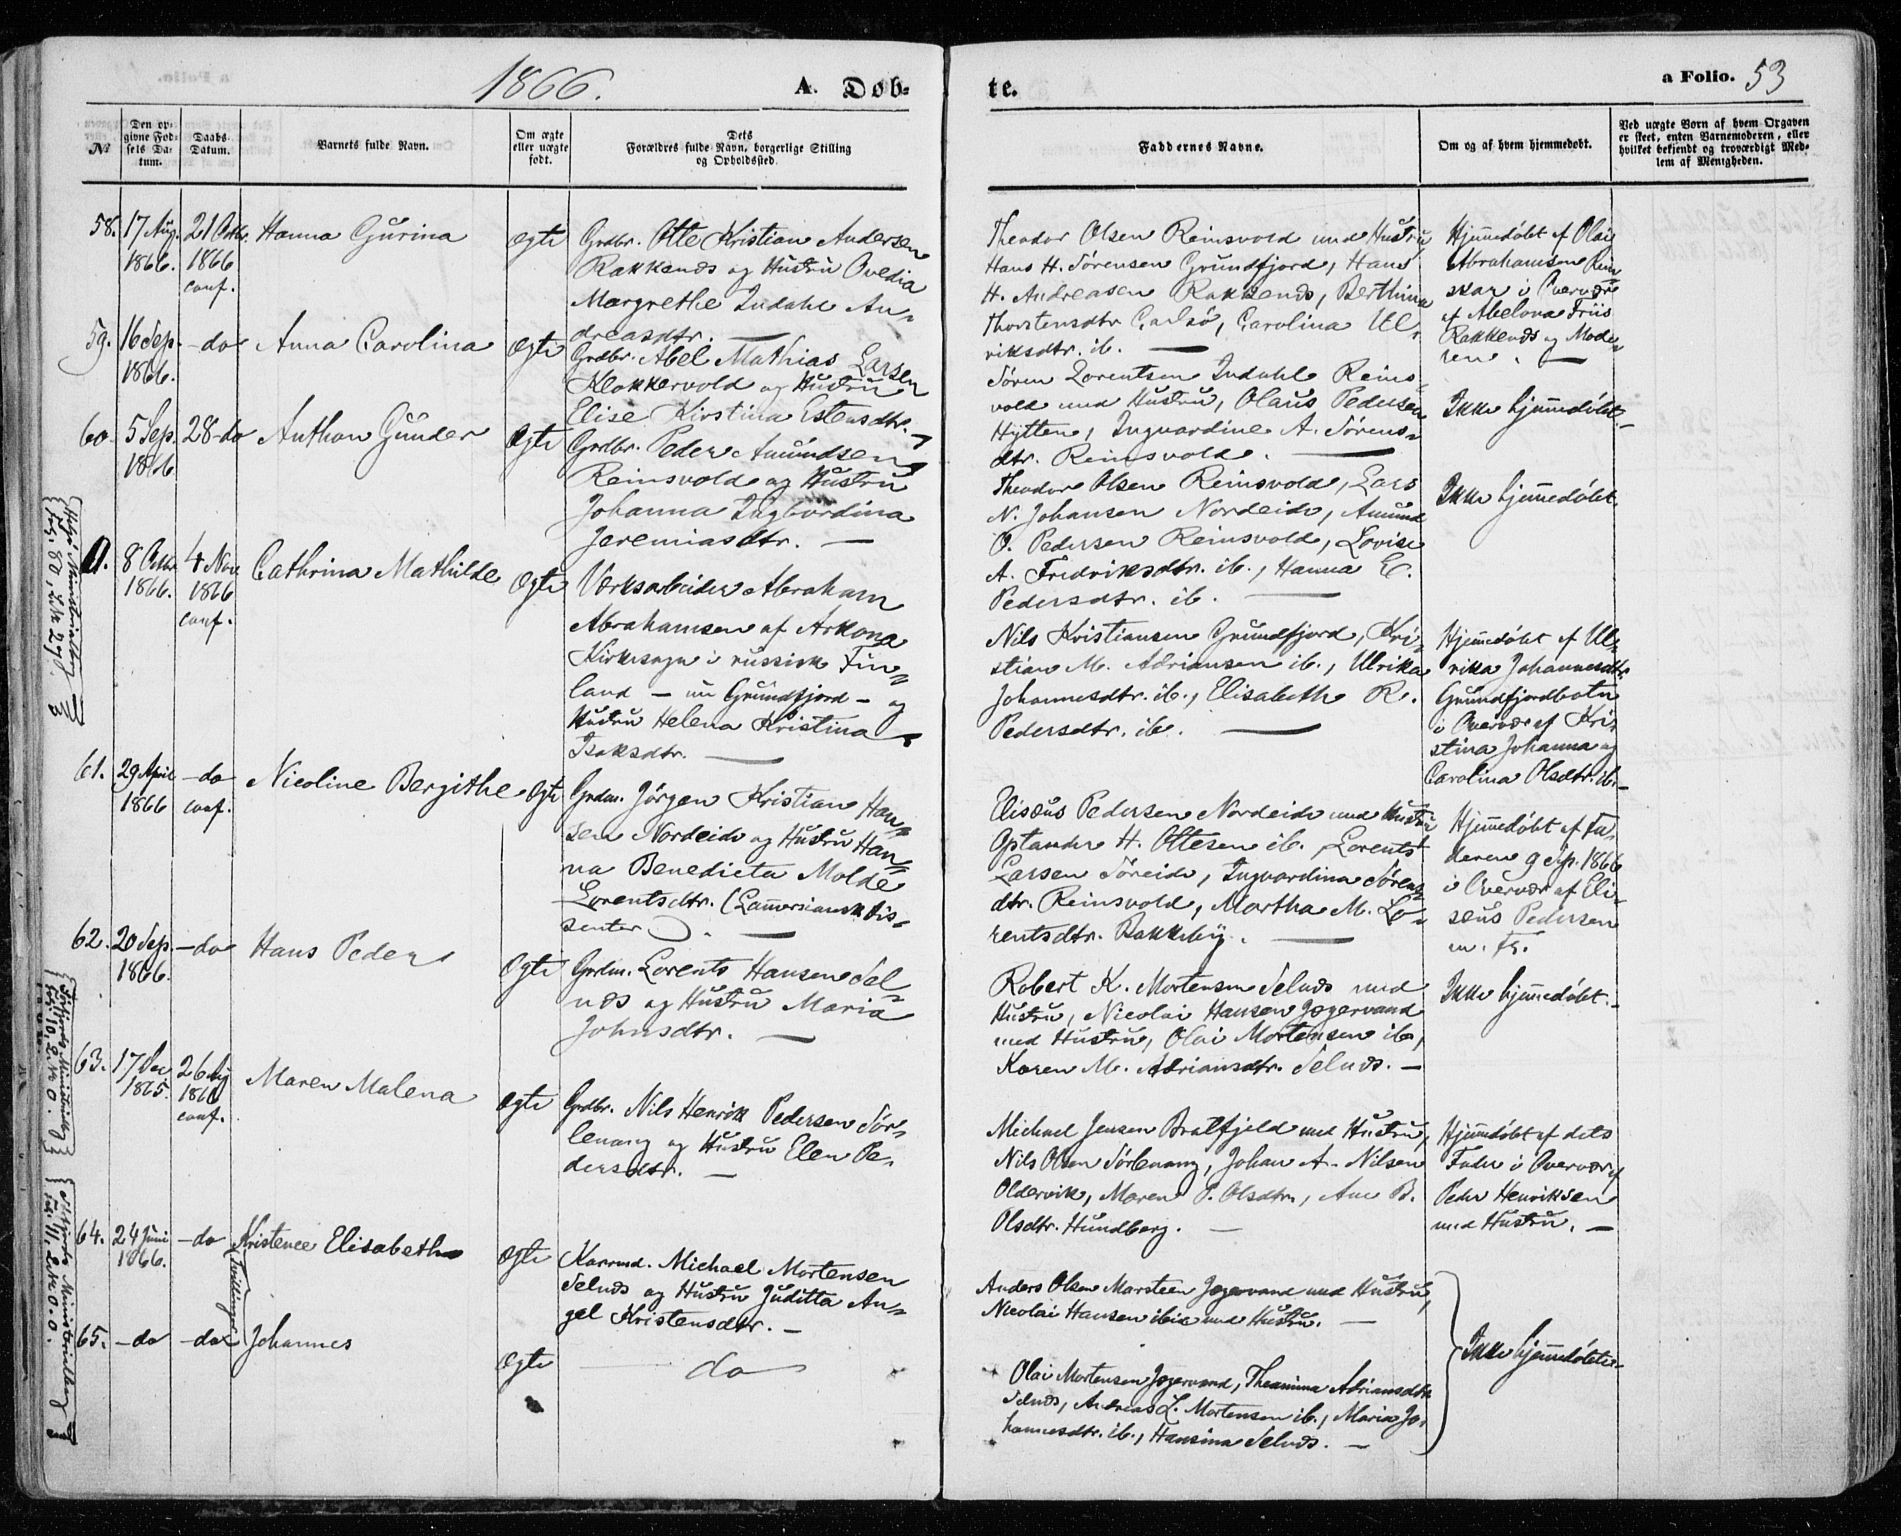 1866.
A. Døb-
te.
a Folio. 53
№
Den op-
givne Fød-
sels Da-
tum.
Daabs
Datum.
Barnets fulde Navn.
Om ægte
eller uægte
født.
Dets
Forældres fulde Navn, borgerlige Stilling
og Opholdssted.
Faddernes Navne.
Om og af hvem hjemmedøbt.
Ved uægte Børn af hvem Opgaven
er skeet, enten Barnemoderen, eller
hvilket bekjendt og troværdigt Med-
lem af Menigheden.
58. 17 Aug. 1866. 21 Octbr. 1866 conf. Hanna Gurina ægte
Grdbr. Otte Kristian Andersen
Rakkenæs og Hustru Ovedia
Margrethe Indahl An-
dreasdtr. —
Theodor Olsen Reinsvold med Hustru
Hans H. Sørensen Grundfjord, Hans
H. Andreasen Rakkenæs, Berthina
Thorstensdtr Carlsø, Carolina Ul-
riksdtr. ib. —
Hjemmedøbt af Olai
Abrahamsen Rein-
skar i Overvær
af Abelona Friis
Rakkenæs og Mode-
ren. —
59. 16 Sep. 1866. -do Anna Carolina ægte
Grdbr. Abel Mathias Larsen
Klokkervold og Hustru
Elise Kirstina Estensdtr. —
Søren Lorentsen Indahl Reins-
vold med Hustru, Olaus Pedersen
Hytten, Ingvardine A. Sørens-
dtr. Reinsvold. —
Ikke hjemmedøbt. —
60. 5 Sep. 1866 28 do Anthon Gunder ægte
Grdbr. Peder Amundsen
Reinsvold og Hustru
Johanna Ingbordina
Jeremiasdtr. —
Theodor Olsen Reinsvold, Lars
N. Johansen Nordeide, Amund
O. Pedersen Reinsvold, Lovise
A. Fredriksdtr. ib., Hanna E.
Pedersdtr. ib. —
Ikke hjemmedøbt.
0. 8 Octbr 1866. 4 Nov 1866 conf. Cathrina Mathilde ægte
Værksarbeider Abraham
Abrahamsen af Arkona
Kirkesogn i russisk Fin-
land — nu Grundfjord — og
Hustru Helena Kristina
Isaksdtr. —
Nils Kristiansen Grundfjord, Kri-
stian M. Adriansen ib., Ulrika
Johannesdtr. ib., Elisabeth R.
Pedersdtr. ib. —
Hjemmedøbt af Ul-
rika Johannesdtr
Grundfjordbotn
i Overvær af Kri-
stina Johanna og
Carolina Olsdtr. ib. —
61. 29 April 1866 -do conf. Nicoline Bergithe ægte
Grdm. Jørgen Kristian Han-
sen Nordeide og Hustru Han-
na Benedicta Molde
Lorentsdtr. (Lammersiansk Dis-
senter). —
Elisæus Pedersen Nordeide med Hustru
Optander H. Ottesen ib. Lorents
Larsen Søreide, Ingvardina Sørens-
dtr. Reinsvold, Martha M. Lo-
rentsdtr. Bakkeby. —
Hjemmedøbt af Fa-
deren 9 Sep. 1866
i Overvær af Eli-
sæus Pedersen
m. Fr.
62. 20 Sep. 1866. -do Hans Peder ægte
Grdm. Lorents Hansen Sel-
næs og Hustru Maria
Johnsdtr. —
Robert K. Mortensen Selnæs med
Hustru, Nicolai Hansen Jægervand
med Hustru, Olai Mortensen ib.,
Karen M. Adriansdtr. Selnæs. —
Ikke hjemmedøbt. —
63. 17 Dec 1865. 26 1866 conf. Maren Malena ægte
Grdbr. Nils Henrik Pedersen Sør-
lenang og Hustru Elen Pe-
dersdtr. —
Michael Jensen Bratfjeld med Hustru,
Nils Olsen Sørlenang, Johan A. Nilsen
Oldervik, Maren P. Olsdtr., Ane B.
Olsdtr. Hundberg. —
Hjemmedøbt af dets
Fader i Overvær af
Peder Henriksen
med Hustru. —
64. 24 Juni 1866. -do Kristence Elisabeth ægte
Tvillinger
Kaarmd. Michael Mortensen
Selnæs og Hustru Juditta An-
gel Kristensdtr. —
Anders Olsen Marsteen Jægervand med Hustru,
Nicolai Hansen ibid med Hustru. —
65. -do -do Johannes ægte
do
Olai Mortensen Jægervand, Theamina Adriansdtr
Selnæs, Andreas L. Mortensen ib., Maria Jo-
hannesdtr. ib., Hansina Selnæs. —
Ikke hjemmedøbte. —